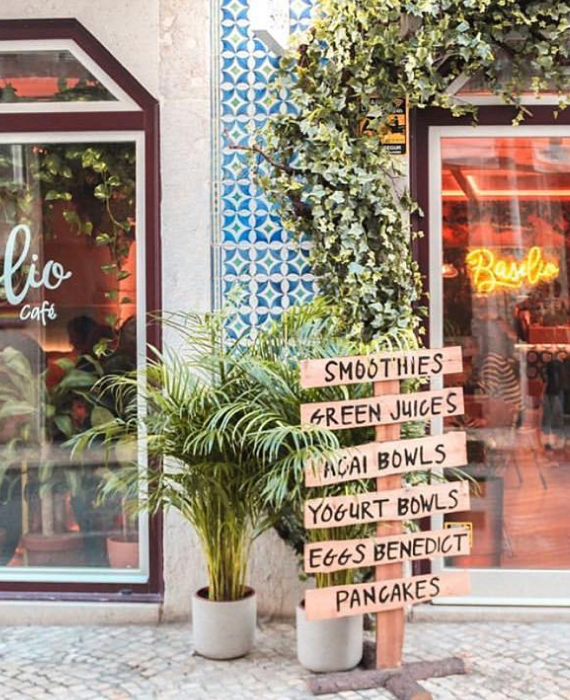 lio
Café
Basilio
SMOOTHIES
GREEN JUICES
AÇAI BOWLS
YOGURT BOWLS
EGGS BENEDICT
PANCAKES